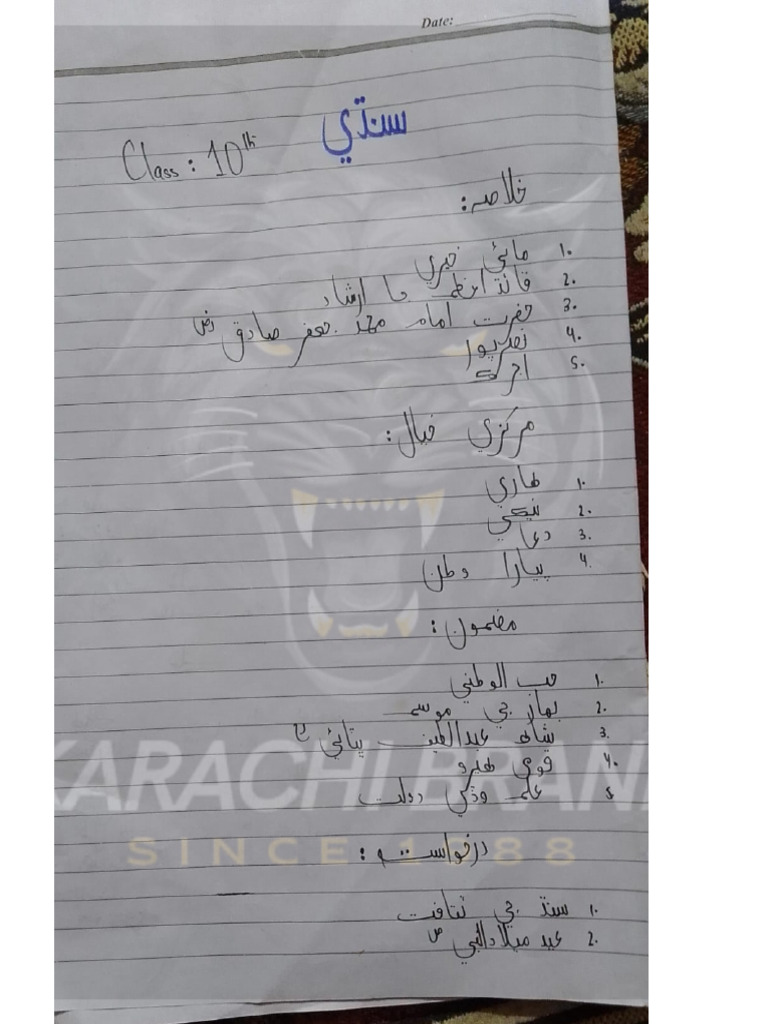 Date:
سنڌي
Class: 10th
خلاصہ:
1. مائي خيري
2. قائد اعظم جا ارشاد
3. حضرت امام محمد جعفر صادق رض
4. نصرپور
5. اجرڪ
مرڪزي خيال:
1. هاري
2. نيڪي
3. دعا
4. پيارا وطن
مضمون:
1. حب الوطني
2. بهار جي موسم
3. شاھ عبداللطيف ڀٽائي رح
4. قومي هيرو
5 علم وڏي دولت
درخواست:
1. سنڌ جي ثقافت
2. عيد ميلادالنبي ص
KARACHI BRAN
SINCE 1988